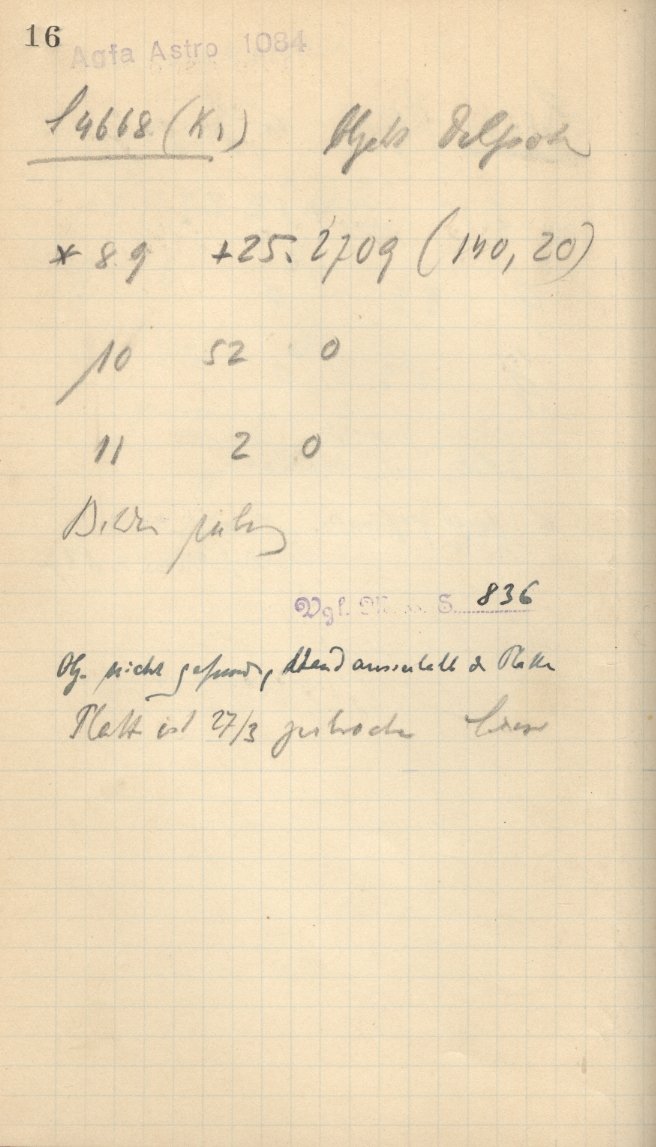 16
Agfa Astro 1084
14668 (K1) Objekt Delporte
* 8.9 +25.2709 (140, 20)
10 52 0
11 2 0
Bilder
Vgl. S. 836
Obj. nicht gefunden, stand ausserhalb d. Platte
Platte ist 27/3 zerbrochen